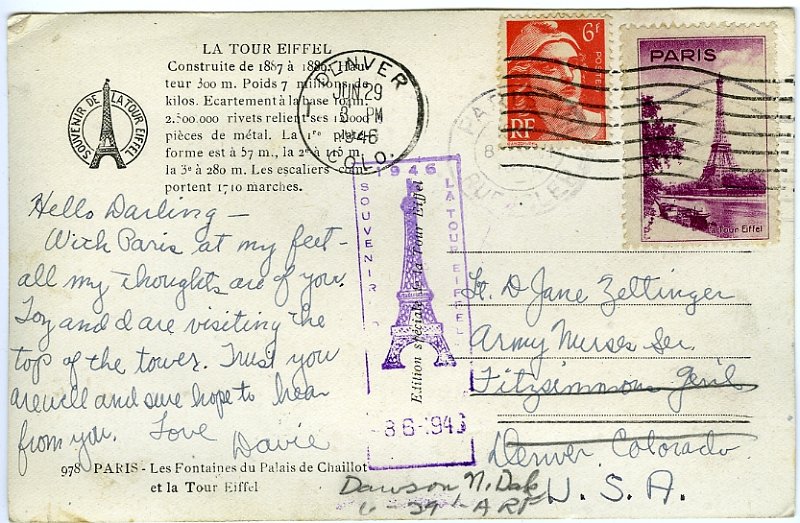 LA TOUR EIFFEL
Construite de 1887 à 1889. Hau-
teur 300 m. Poids 7 millions de
kilos. Ecartement à la base 104m.
2.500.000 rivets relient ses 12000
pièces de métal. La 1re plate-
forme est à 57 m., la 2e à 115 m.
la 3e à 280 m. Les escaliers com-
portent 1710 marches.
SOUVENIR DE LA TOUR EIFFEL
DENVER
JUN 29
3 PM
1946
COLO.
6F
POSTES
RF
PARIS
La Tour Eiffel
PARIS
1946
SOUVENIR
LA TOUR EIFFEL
Edition spéciale de la Tour Eiffel
Hello Darling —
With Paris at my feet -
all my thoughts are of you.
Toy and I are visiting the
top of the tower. Trust you
are well and sure hope to hear
from you. Love
Davie
Lt. D Jane Zettinger
Army Nurses Ser.
Fitzsimmons Genl
Denver Colorado
U. S. A.
978 PARIS - Les Fontaines du Palais de Chaillot
et la Tour Eiffel
Dawson N.